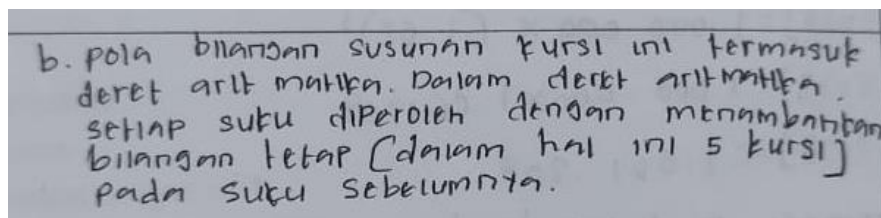 b. pola bilangan susunan kursi ini termasuk
deret aritmatika. Dalam deret aritmatika
setiap suku diperoleh dengan menambahkan
bilangan tetap (dalam hal ini 5 kursi)
pada suku sebelumnya.